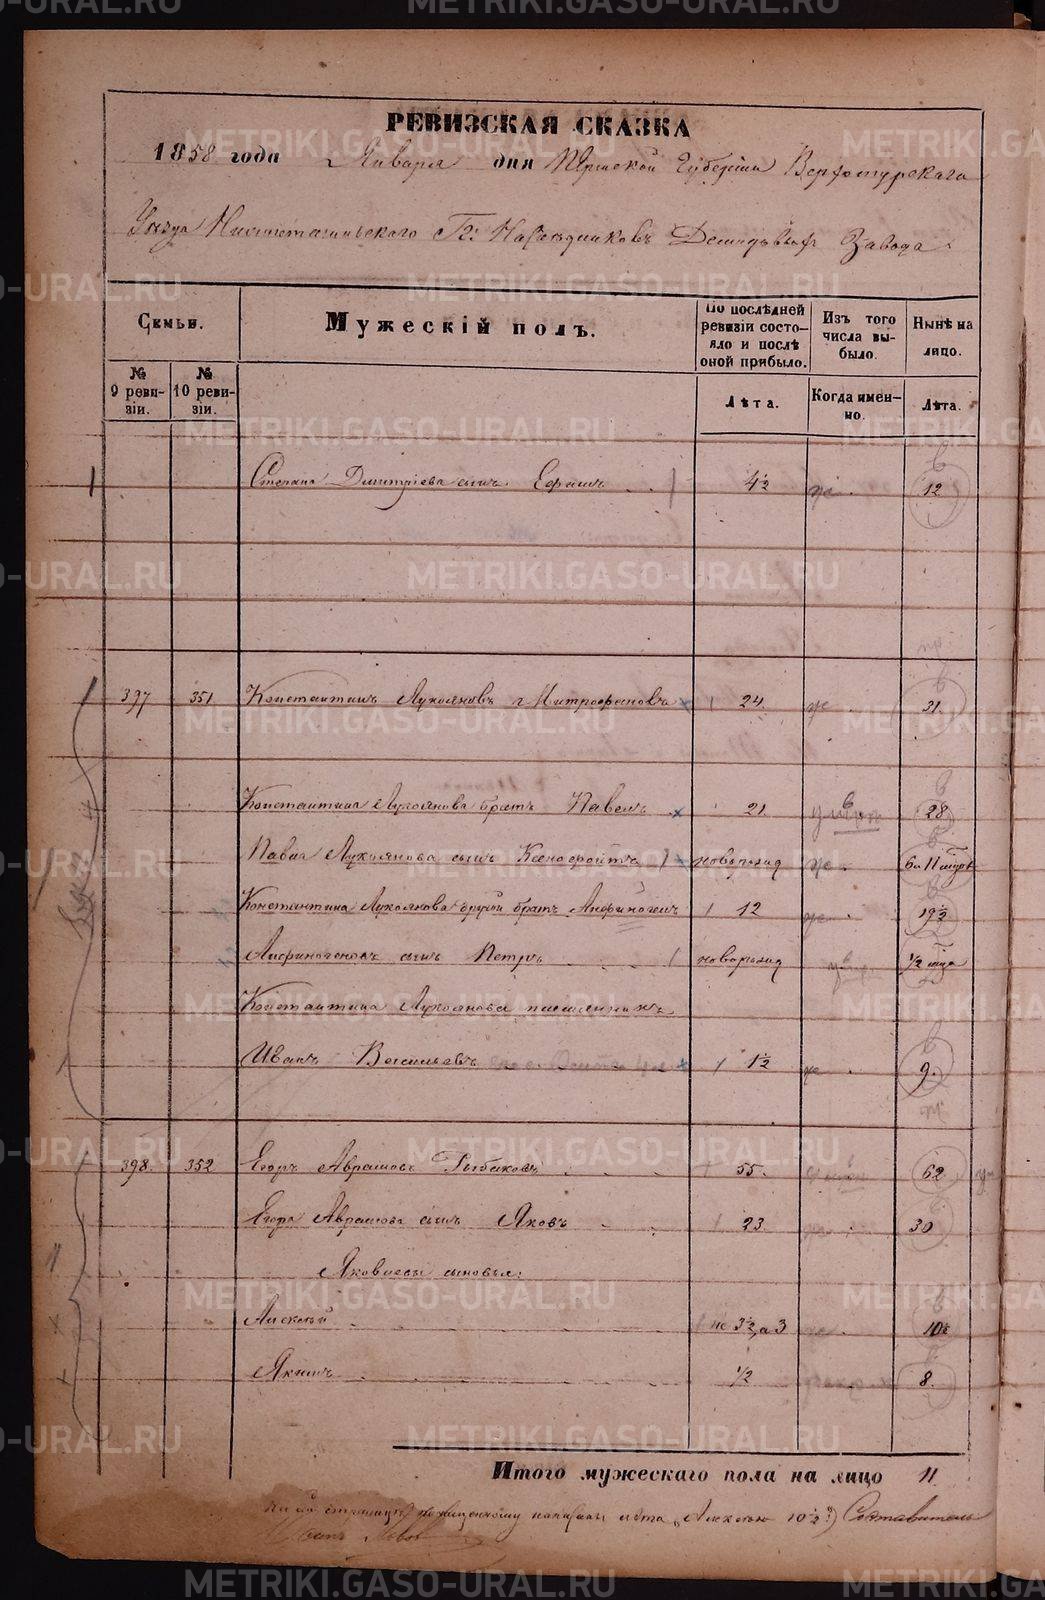 РЕВИЗСКАЯ СКАЗКА
1858 года Января дня Пермской Губернии Верхотурскаго
Уѣзда Нижнетагильскаго Гг. Наслѣдниковъ Демидовыхъ Завода.
Семьи.
Мужескій полъ.
По послѣдней ревизіи состояло и послѣ оной прибыло.
Изъ того числа выбыло.
Нынѣ на лицо.
№ 9 ревизіи.
№ 10 ревизіи.
Лѣта.
Когда именно.
Лѣта.
Степана Дмитріева сынъ Ефимъ 4½ 12
397 351 Константинъ Лукояновъ Митрофановъ 24 31
Константина Лукоянова братъ Павелъ 21 28
Павла Лукоянова сынъ Ксенофонтъ новорожд
Константина Лукоянова другой братъ Анфиногенъ 12 19½
Анфиногеновъ сынъ Петръ новорожд ½
Константина Лукоянова племянникъ
Иванъ Васильевъ 1½ 9.
398. 352 Егоръ Аврамовъ Рыбаковъ 55. 62
Егора Аврамова сынъ Яковъ 23 30
Яковлевы сыновья:
Алексѣй не 3½, а 3 10½
Якимъ ½ 8.
Итого мужескаго пола на лицо 11
На сей страницѣ по написаны лѣта „Алексѣю 10½“) Составитель
METRIKI.GASO-URAL.RU